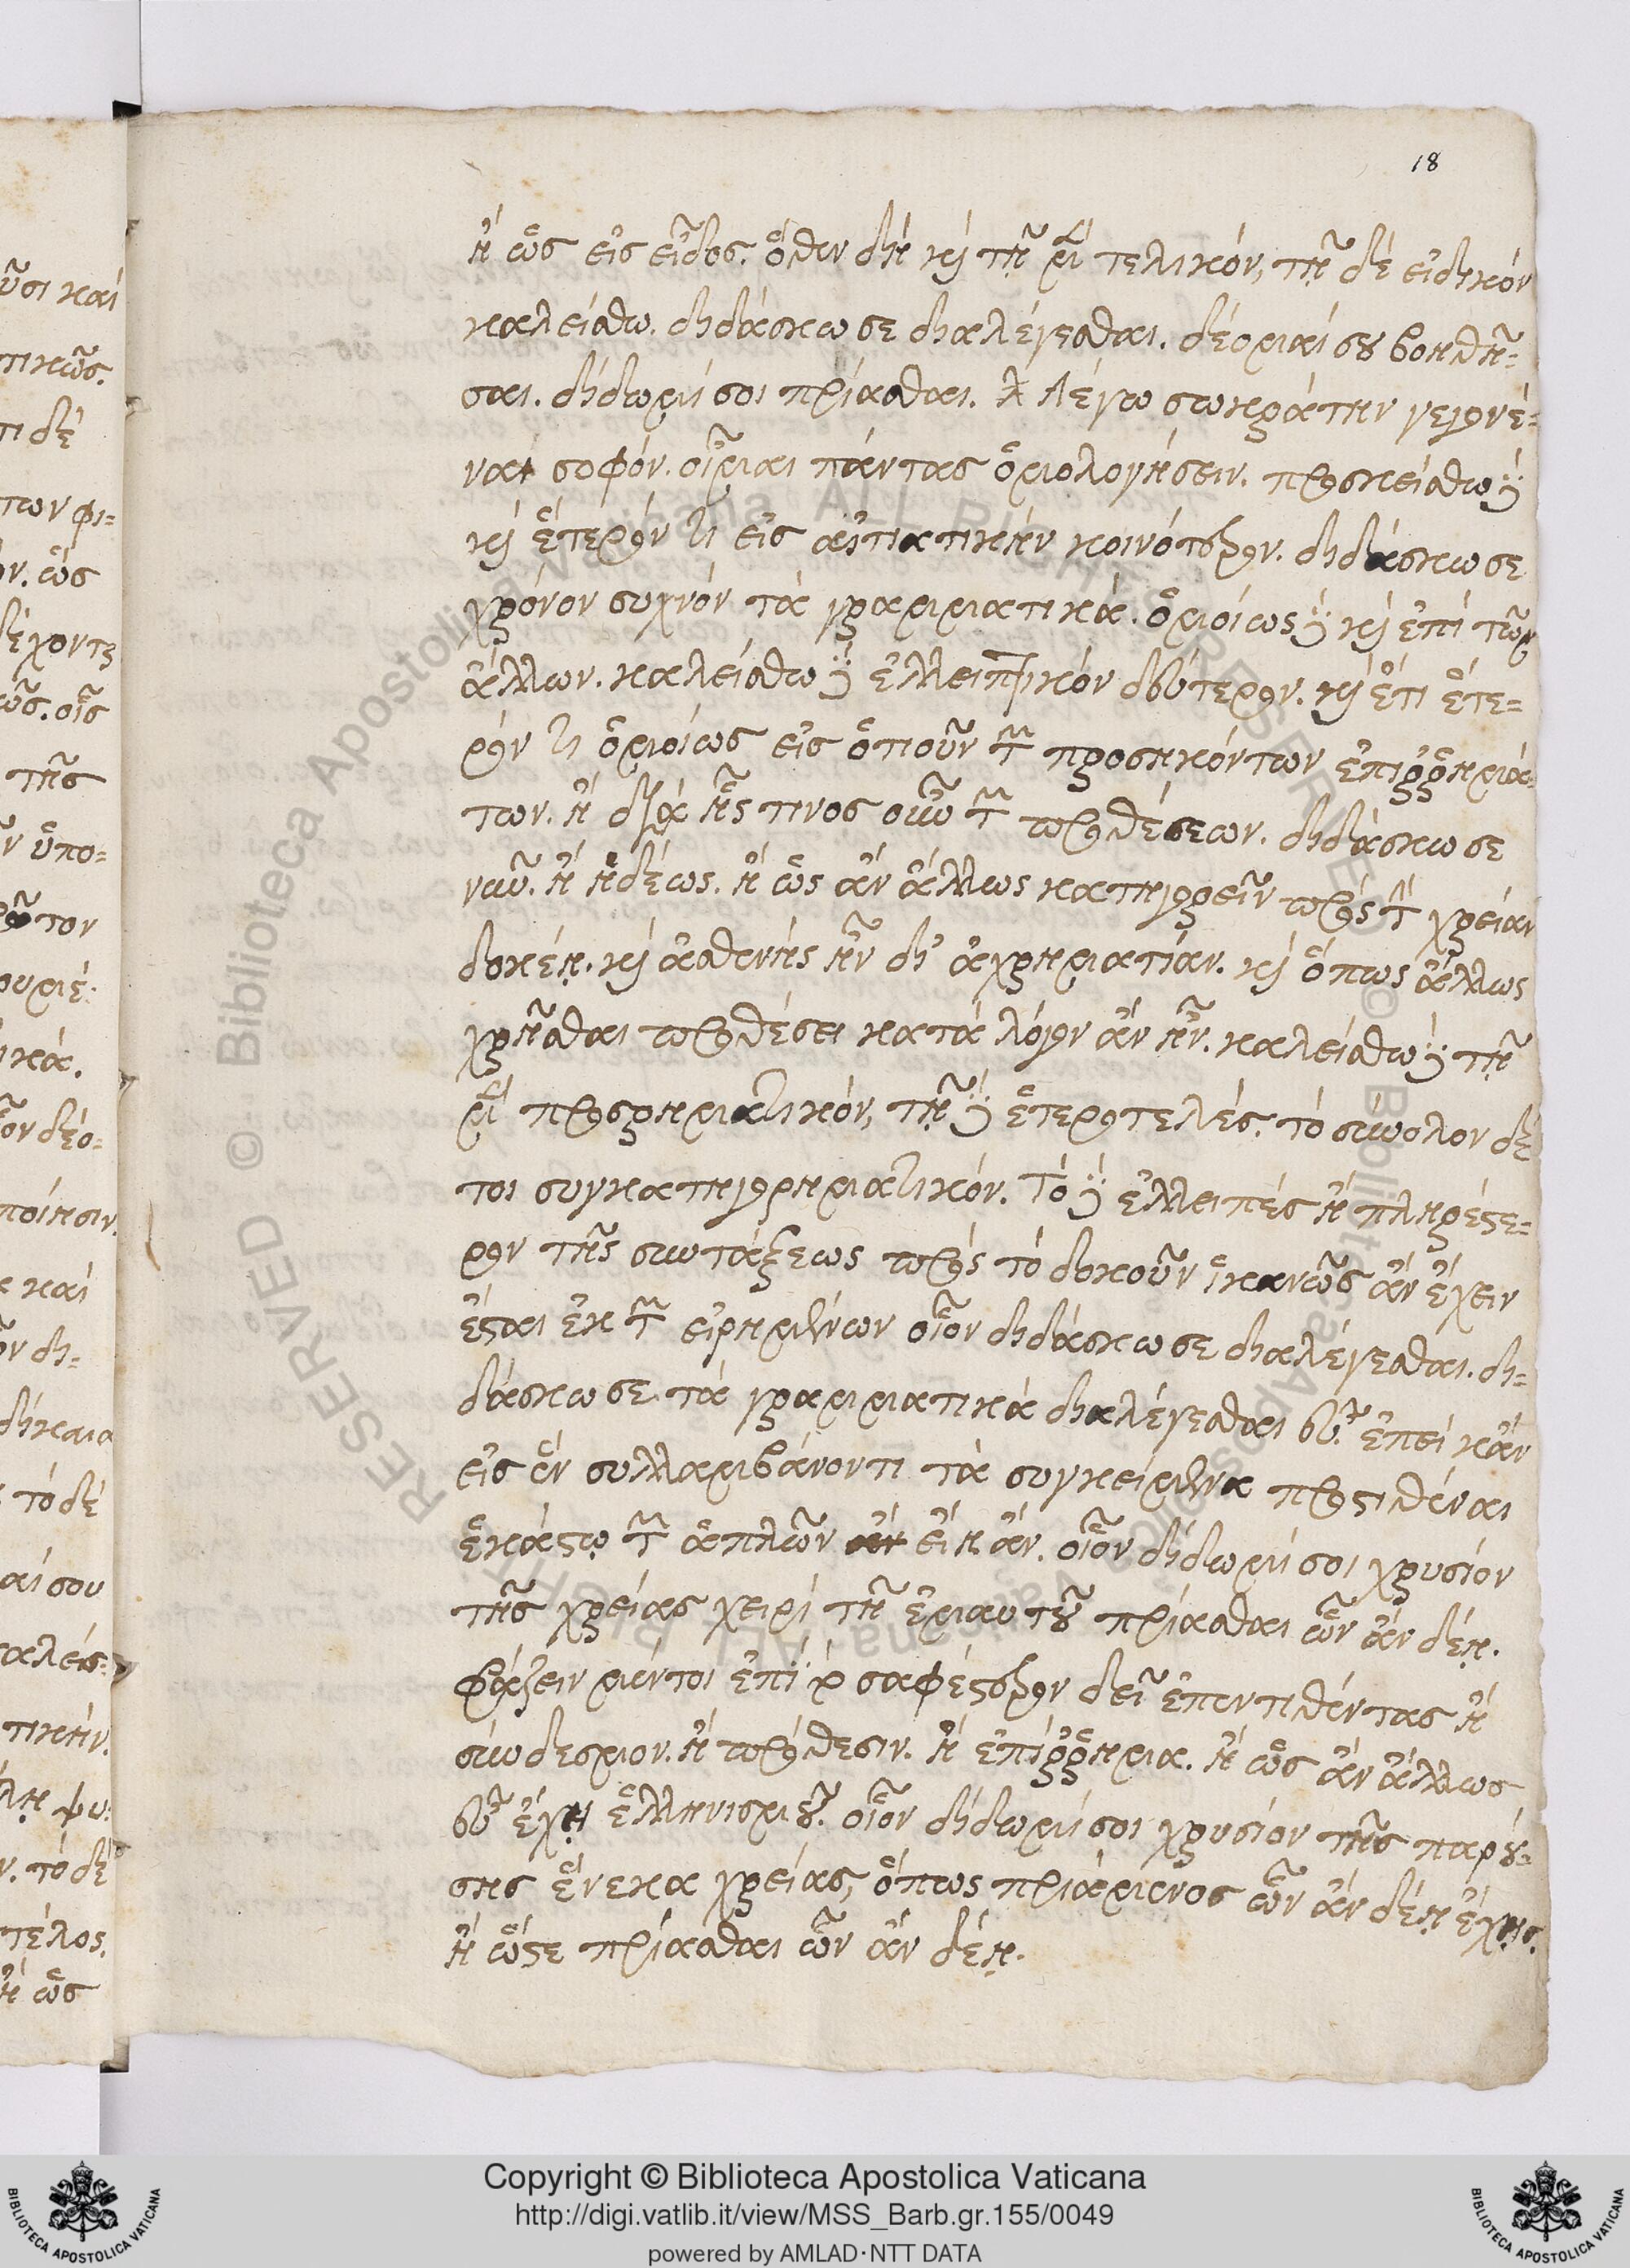 18
ἢ ὡς εἰς εἶδος. ὅθεν δὴ καὶ τῇ μὲν τελικόν, τῇ δὲ εἰδικὸν
καλείσθω. διδάσκω σε διαλέγεσθαι. δέομαί σου βοηθῆ-
σαι. δίδωμί σοι πρίασθαι. λέγω σωκράτην γεγονέ-
ναι σοφόν. οἶμαι πάντας ὁμολογήσειν. προσκείσθω δὲ
καὶ ἕτερόν τι εἰς αἰτιατικὴν κοινότερον. διδάσκω σε
χρόνον συχνὸν τὰ γραμματικά. ὁμοίως δὲ καὶ ἐπὶ τῶν
ἄλλων. καλείσθω δὲ ἐλλειπτικὸν δεύτερον. καὶ ἔτι ἕτε-
ρόν τι ὁμοίως εἰς ὁτιοῦν τῶν προσηκόντων ἐπιῤῥημά-
των. ἢ διὰ ἧς τινος οὖν τῶν προθέσεων. διδάσκω σε
νῦν. ἢ ἡδέως. ἢ ὡς ἂν ἄλλως κατηγορεῖν πρὸς τὴν χρείαν
δοκέῃ. καὶ ἀσθενὴς ἦν δι' ἀχρηματίαν. καὶ ὅπως ἄλλως
χρῆσθαι προθέσει κατὰ λόγον ἂν ἦν. καλείσθω δὲ τῇ
μὲν προσρηματικόν, τῇ δὲ ἑτεροτελές. τὸ σύνολον δέ
τοι συγκατηγορηματικόν. Τὸ δὲ ἐλλειπὲς ἢ πληρέστε-
ρον τῆς συντάξεως πρὸς τὸ δοκοῦν ἱκανῶς ἂν ἔχειν
ἔσται ἐκ τῶν εἰρημένων οἷον διδάσκω σε διαλέγεσθαι. δι-
δάσκω σε τὰ γραμματικὰ διαλέγεσθαι εὖ. ἐπεὶ κἂν
εἰς ἓν συλλαμβάνοντι τὰ συγκείμενα προστιθέναι
ἑκάστῳ τῶν ἁπλῶν εἴη ἄν. οἷον δίδωμί σοι χρυσίον
τῆς χρείας χειρὶ τῇ ἐμαυτοῦ πρίασθαι ὧν ἂν δέῃ.
φράζειν μέντοι ἐπὶ τὸ σαφέστερον δεῖ ἐπεντιθέντας ἢ
σύνδεσμον. ἢ πρόθεσιν. ἢ ἐπίῤῥημα. ἢ ὡς ἂν ἄλλως
εὖ ἔχῃ ἑλληνισμοῦ. οἷον δίδωμί σοι χρυσίον τῆς παρού-
σης ἕνεκα χρείας, ὅπως πριάμενος ὧν ἂν δέῃ ἔχῃς.
ἢ ὥστε πρίασθαι ὧν ἂν δέῃ.
Copyright © Biblioteca Apostolica Vaticana
http://digi.vatlib.it/view/MSS_Barb.gr.155/0049
powered by AMLAD·NTT DATA